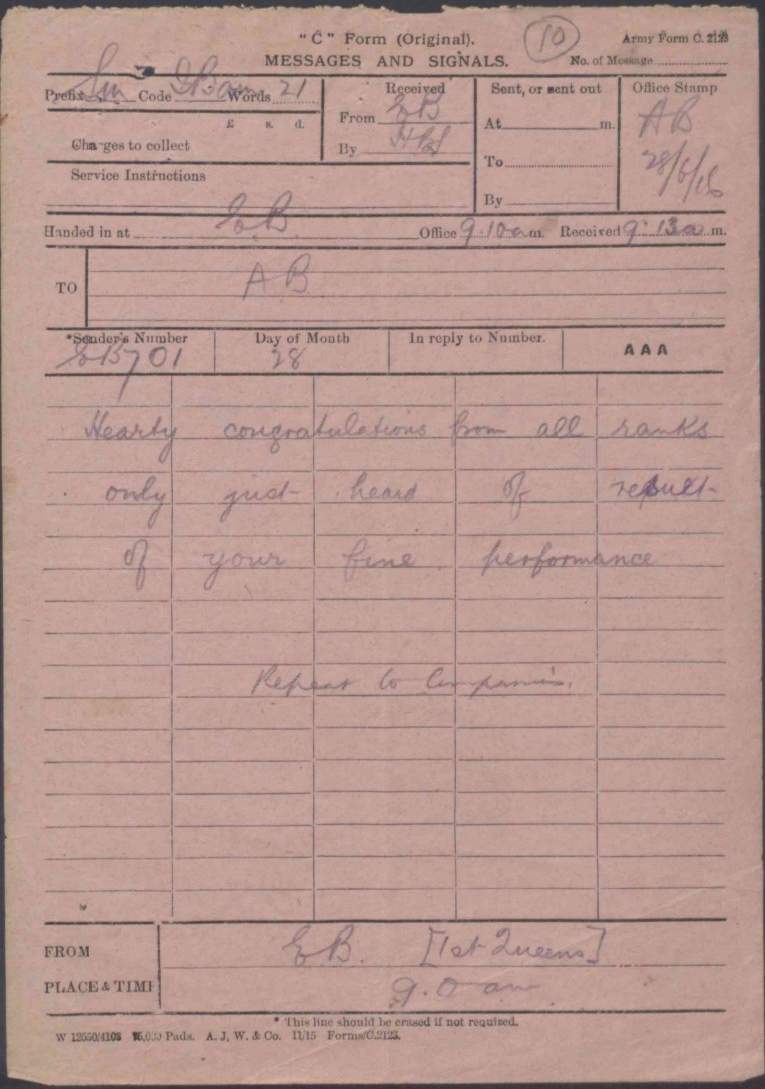 "C" Form (Original). 10 Army Form C. 2123
MESSAGES AND SIGNALS. No. of Message
Prefix Sm Code Words 21 Received Sent, or sent out Office Stamp
£ s. d. From EB At m. AB
Charges to collect By To 28/6/16
Service Instructions By
Handed in at EB Office 9.10 a m. Received 9.13 a m.
TO AB
*Sender's Number Day of Month In reply to Number. AAA
EB701 28
Hearty congratulations from all ranks
only just heard of result
of your fine performance
Repeat to Companies.
FROM EB. [1st Queens]
PLACE & TIME 9.0 am
* This line should be erased if not required.
W 12550/4103 75,000 Pads. A. J. W. & Co. 11/15 Forms/C.2123.